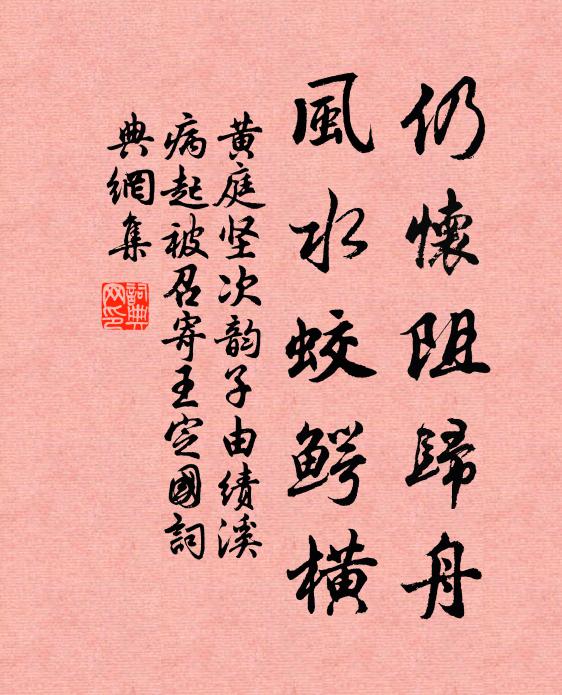 仍懷阻歸舟
風水蛟鳄橫
黄庭坚次韵子由绩溪
病起被召寄王定國詞
典網集
詞典
网印